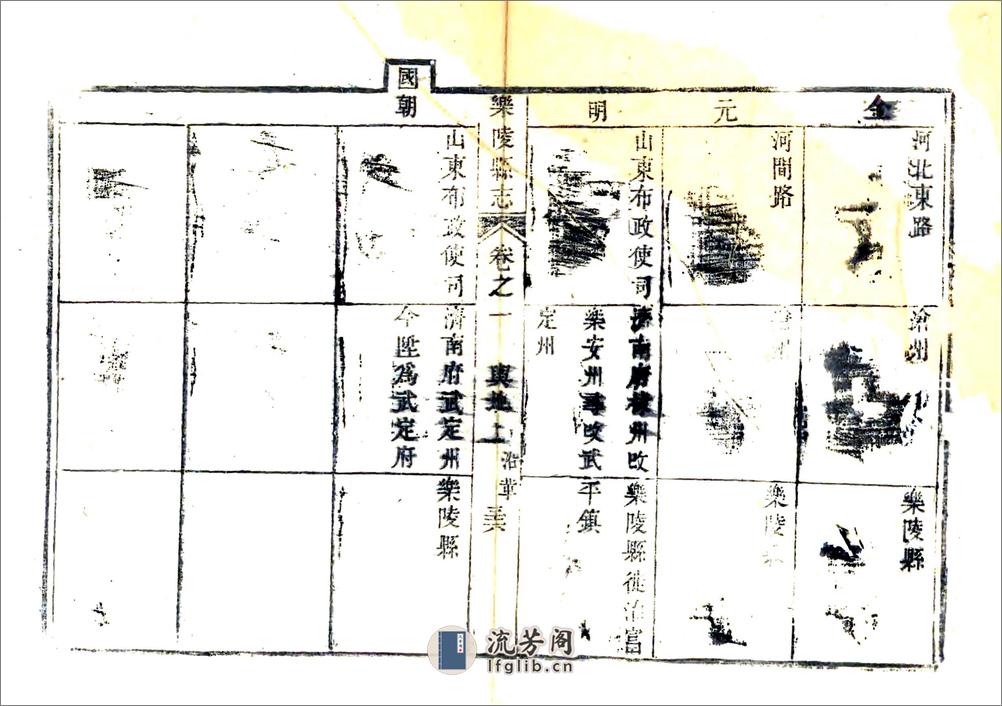 金
河北東路
滄州
樂陵縣
元
河間路
滄州
樂陵縣
明
山東布政使司
濟南府棣州改
樂安州尋改武
定州
樂陵縣徙治富
平鎮
樂陵縣志
卷之一
輿地上
沿革
國朝
山東布政使司
濟南府武定州
今陞為武定府
樂陵縣
流芳阁
lfglib.cn